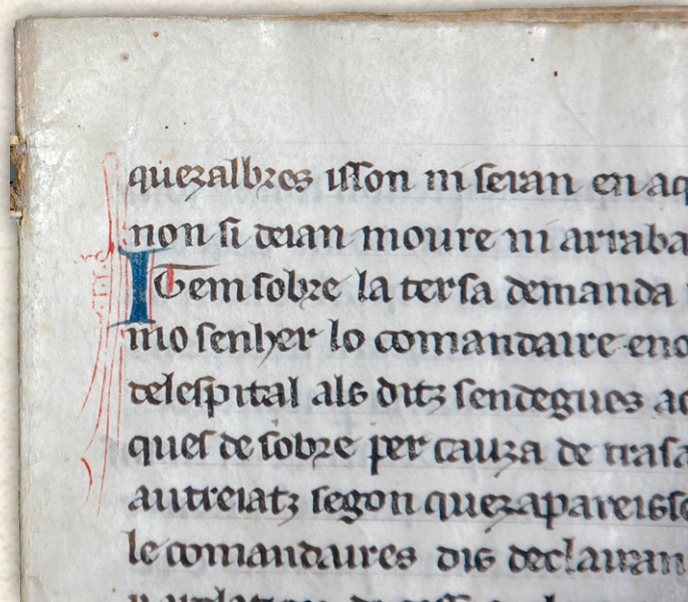 quezalbres isson ni seran en aq
non si deian moure ni arraba
Item sobre la tersa demanda
mo senher lo comandaire eno
delespital als ditz sendegues ac
ques de sobre per cauza de trasa
autreiatz segon quezapareisse
le comandaires dis declairan